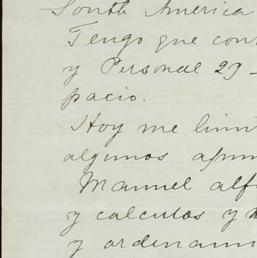 South America
Tengo que con
y Personal 29-
pacio.
Hoy me limi
algunos apun
Manuel alf
y calculos y
y ordenami